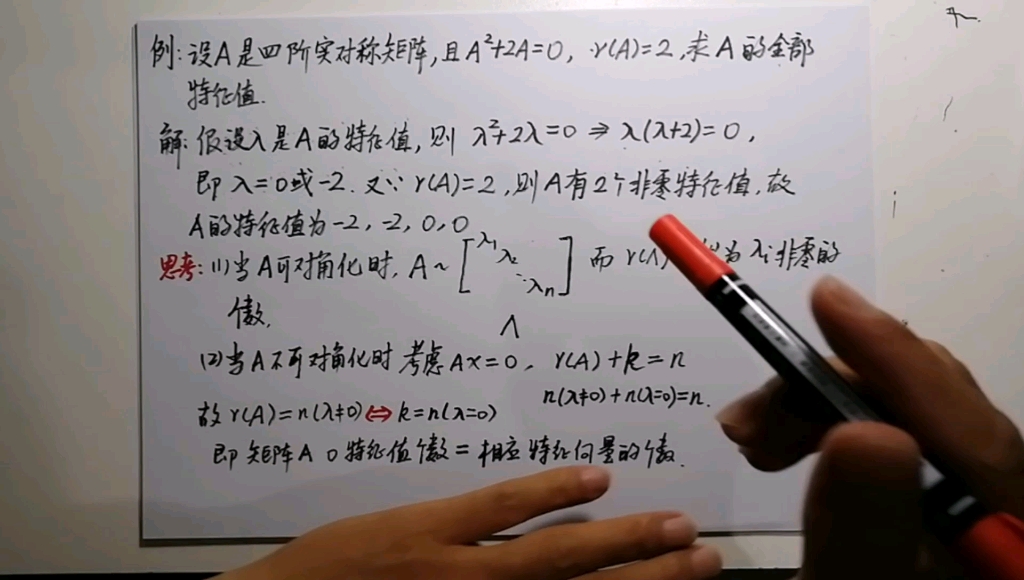 例:设A是四阶实对称矩阵,且A²+2A=0, r(A)=2,求A的全部
特征值.
解:假设λ是A的特征值,则 λ²+2λ=0 ⇒ λ(λ+2)=0,
即 λ=0或-2. 又∵ r(A)=2,则A有2个非零特征值,故
A的特征值为-2, -2, 0, 0
思考: (1)当A可对角化时, A~[λ₁ λ₂ ⋱ λn] 而 r(Λ) 为λi非零的
个数.
Λ
(2)当A不可对角化时 考虑Ax=0, r(A)+k=n
n(λ≠0)+n(λ=0)=n.
故 r(A)=n(λ≠0)⇔k=n(λ=0)
即 矩阵A 0特征值个数=相应特征向量的个数.